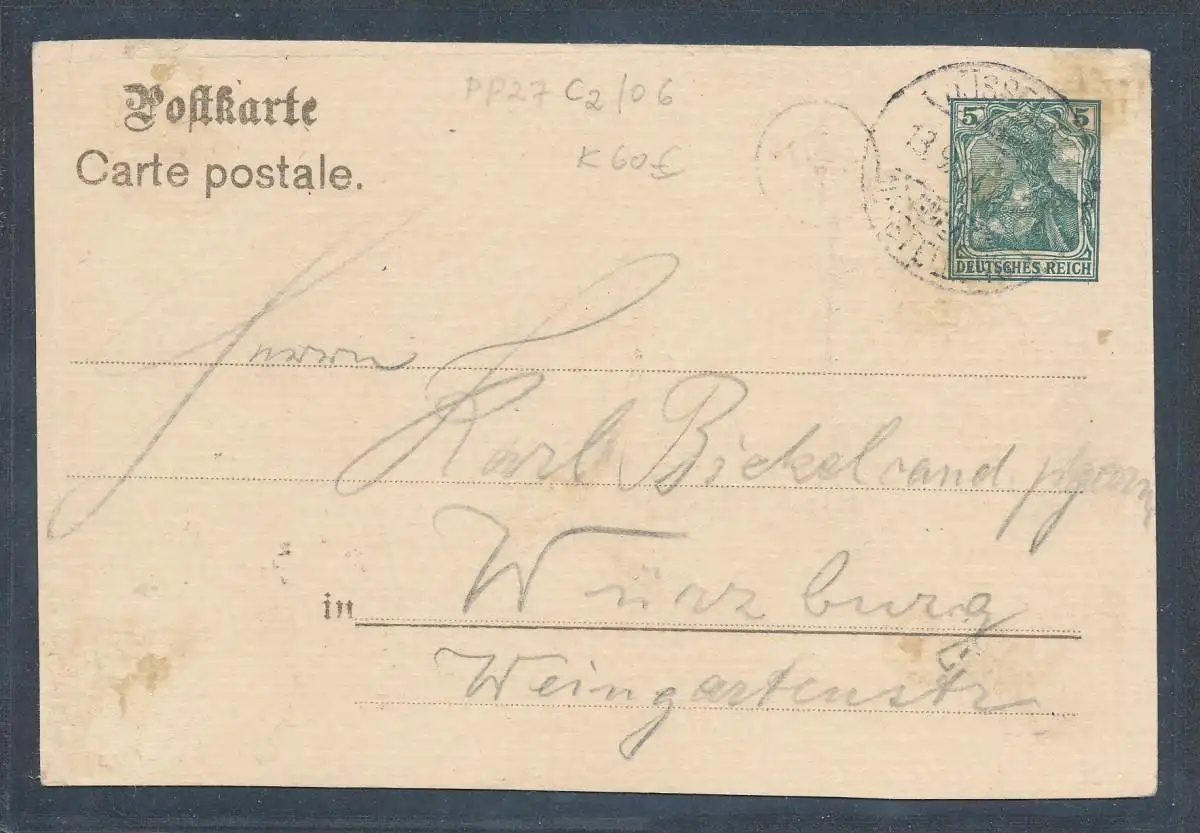 Postkarte
Carte postale.
PP27 C2/06
K 60
5 5
DEUTSCHES REICH
13.9
Herrn
Karl Bickel cand.
in Würzburg
Weingartenstr